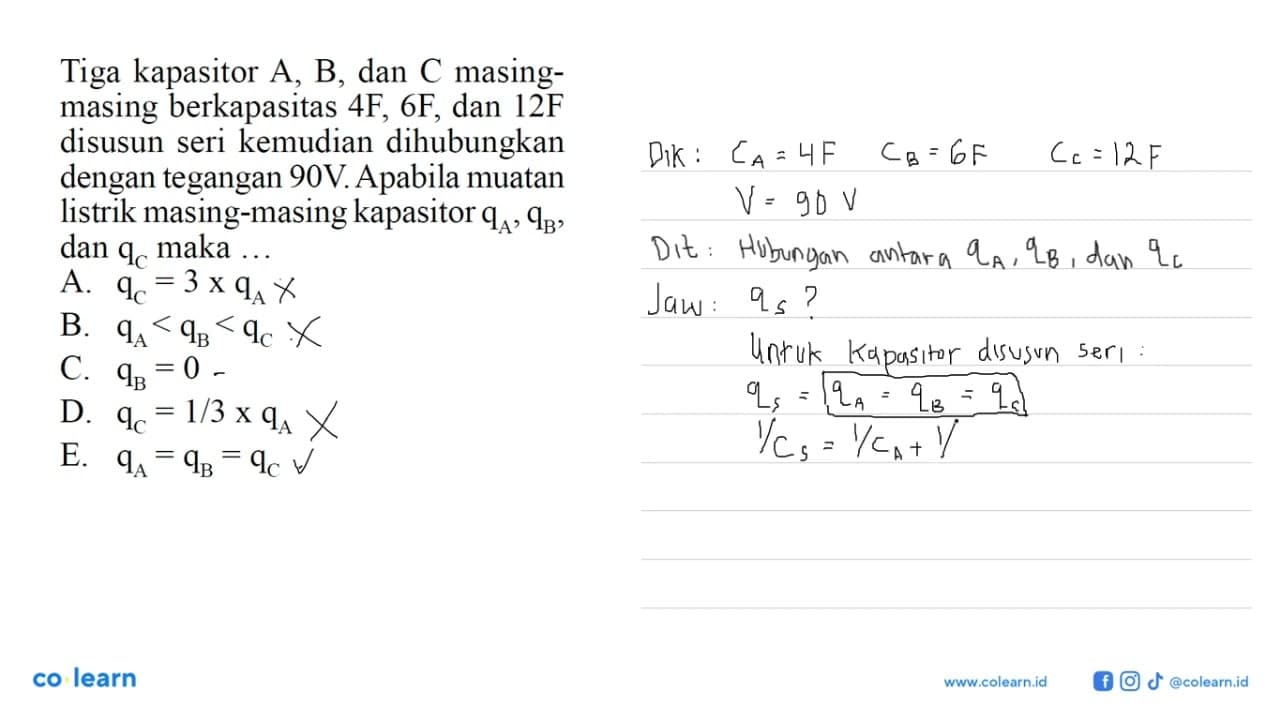 Tiga kapasitor A, B, dan C masing-
masing berkapasitas 4F, 6F, dan 12F
disusun seri kemudian dihubungkan
dengan tegangan 90V. Apabila muatan
listrik masing-masing kapasitor q_A, q_B,
dan q_C maka ...
A. q_C = 3 x q_A
B. q_A < q_B < q_C
C. q_B = 0 -
D. q_C = 1/3 x q_A
E. q_A = q_B = q_C ✓
Dik : C_A = 4F C_B = 6F C_C = 12F
V = 90 V
Dit : Hubungan antara q_A, q_B, dan q_C
Jaw : q_s ?
Untuk kapasitor disusun seri :
q_s = q_A = q_B = q_C
1/C_s = 1/C_A + 1/
co learn
www.colearn.id
@colearn.id